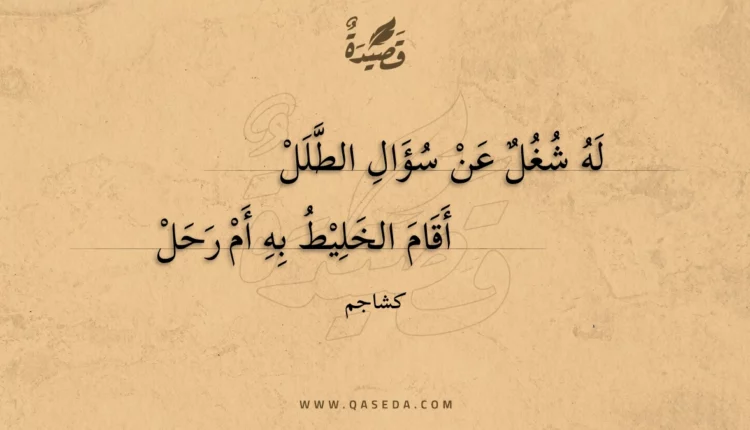 قَصِيدَةٌ
لَهُ شُغُلٌ عَنْ سُؤَالِ الطَّلَلْ
أَقَامَ الخَلِيْطُ بِهِ أَمْ رَحَلْ
كشاجم
WWW.QASEDA.COM